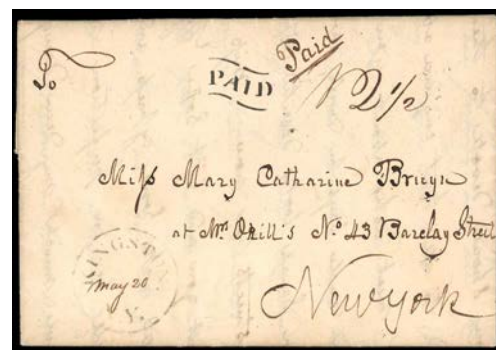 Paid
PAID
12 1/2
Miſs Mary Catharine Bruyn
at Mrs Okill's No. 43 Barclay Street
New York
KINGSTON
May 20
N.Y.